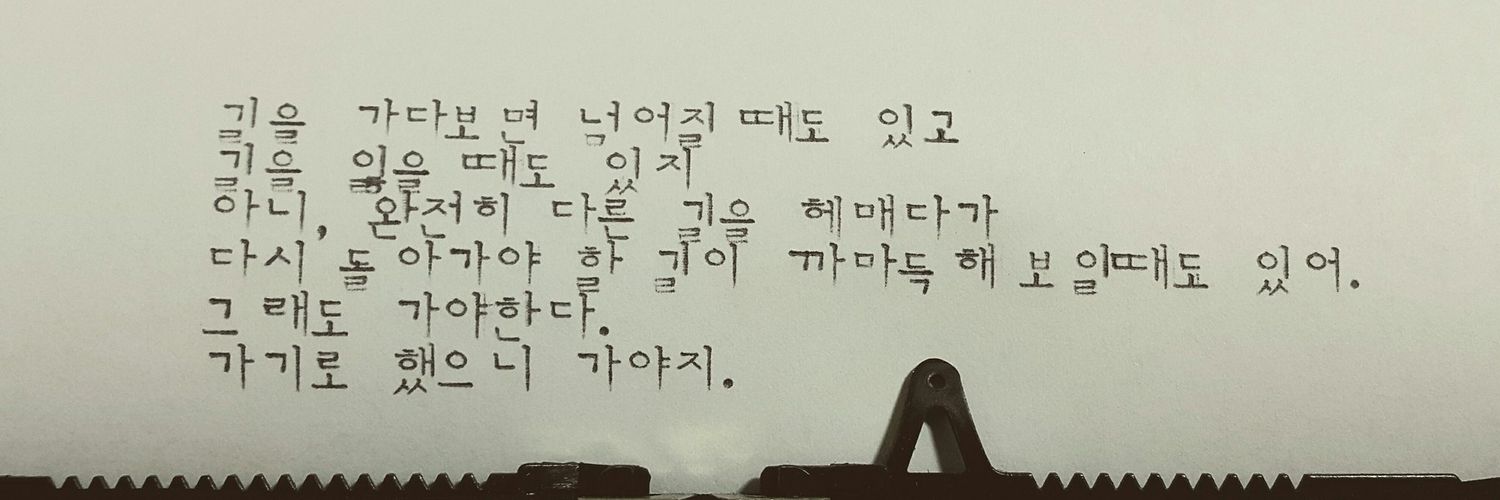 길을 가다보면 넘어질 때도 있고
길을 잃을 때도 있지
아니, 완전히 다른 길을 헤매다가
다시 돌아가야 할 길이 까마득해 보일때도 있어.
그래도 가야한다.
가기로 했으니 가야지.